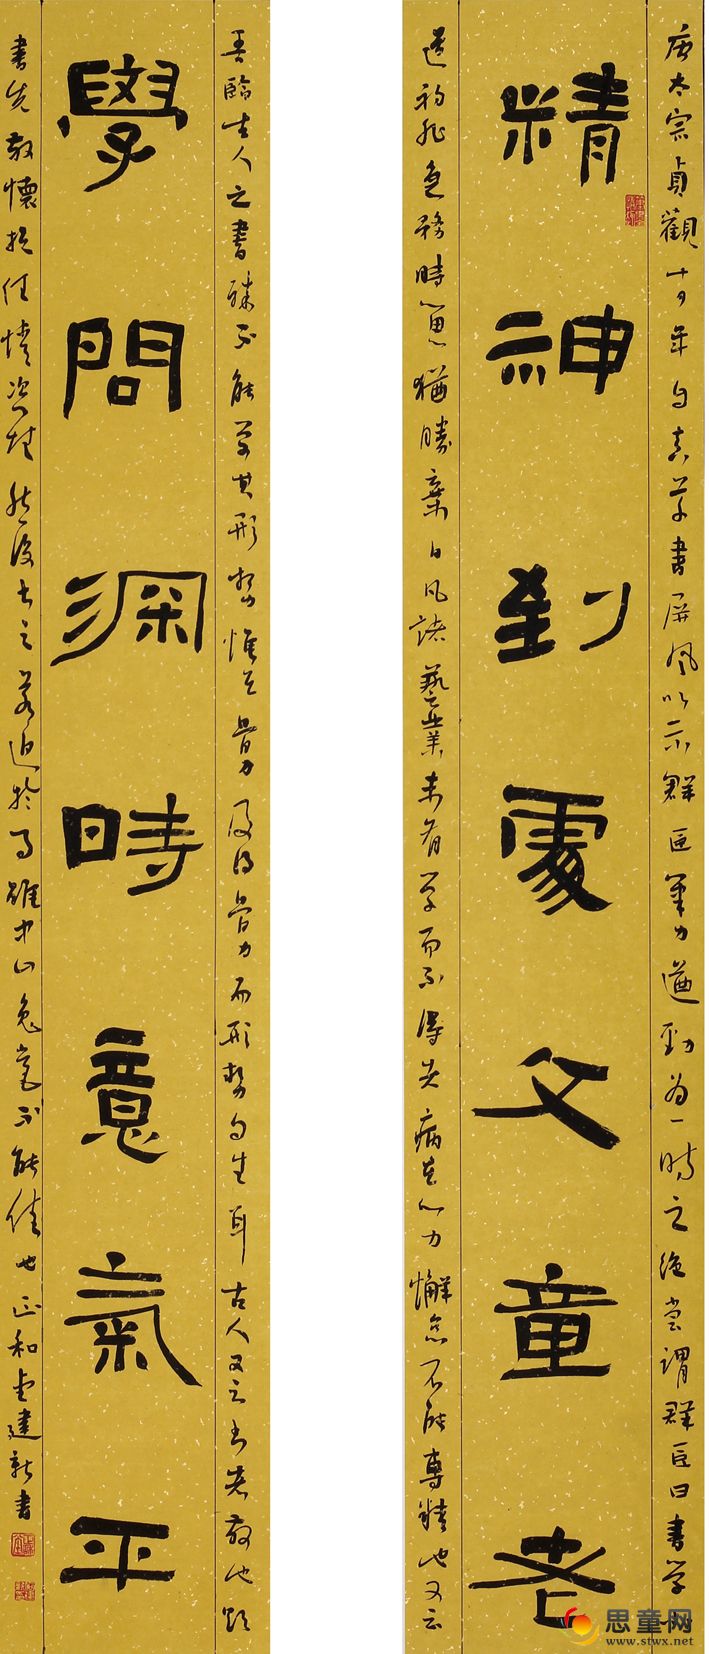 唐太宗貞觀十四年自真草書屏風以示群臣筆力遒勁為一時之絕嘗謂群臣曰書學小
精神到處文章老
道初非急務時留心猶勝棄日凡諸藝業未有學而不得者病在心力懈怠不能專精也又云
吾臨古人之書殊不能學其形勢惟在骨力及得骨力而形勢自生耳古人又云書者散也欲
學問深時意氣平
書先散懷抱任情恣性然後書之若迫於事雖中山兔毫不能佳也正和堂建新書
思童网
www.stwx.net